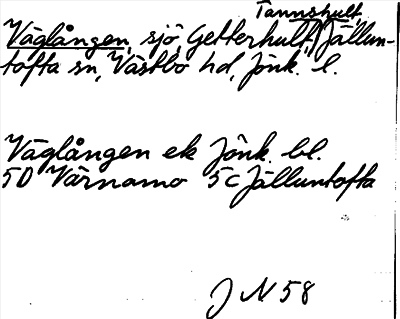 Tannshult,
Våglången, sjö, Getterhult, Jällun-
tofta sn, Västbo hd, Jönk. l.
Våglången ek Jönk. bl.
5D Värnamo 5C Jälluntofta
J N 58